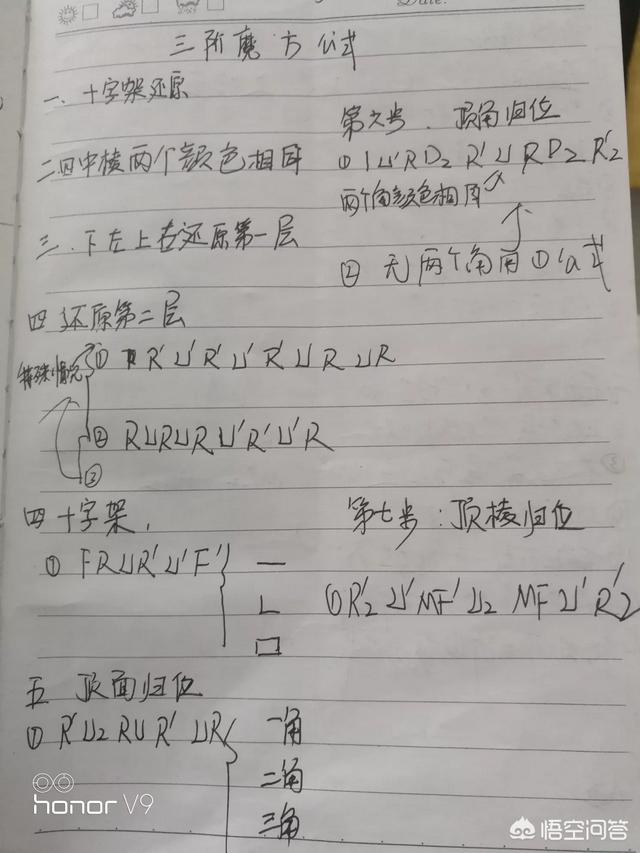 Date:
三阶魔方公式
一、十字架还原
二四中棱两个颜色相同
三、下左上右还原第一层
四 还原第二层
特殊情况 ① R'U'R'U'R'URUR
② RURURU'R'U'R
③
四 十字架,
① FRUR'U'F' 一
L
口
五 顶面归位
① R'U2RUR'UR 一角
二角
三角
第六步、顶角归位
① U'RD2R'URD2R'2
两个角颜色相同
② 无两个角用①公式
第七步:顶棱归位
① R'2U'MF'U2MFU'R'2
honor V9
悟空问答